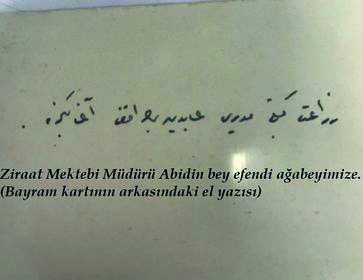 زراعت مكتبی مدیری عابدین بك افندی آغابكمزه .
Ziraat Mektebi Müdürü Abidin bey efendi ağabeyimize.
(Bayram kartının arkasındaki el yazısı)